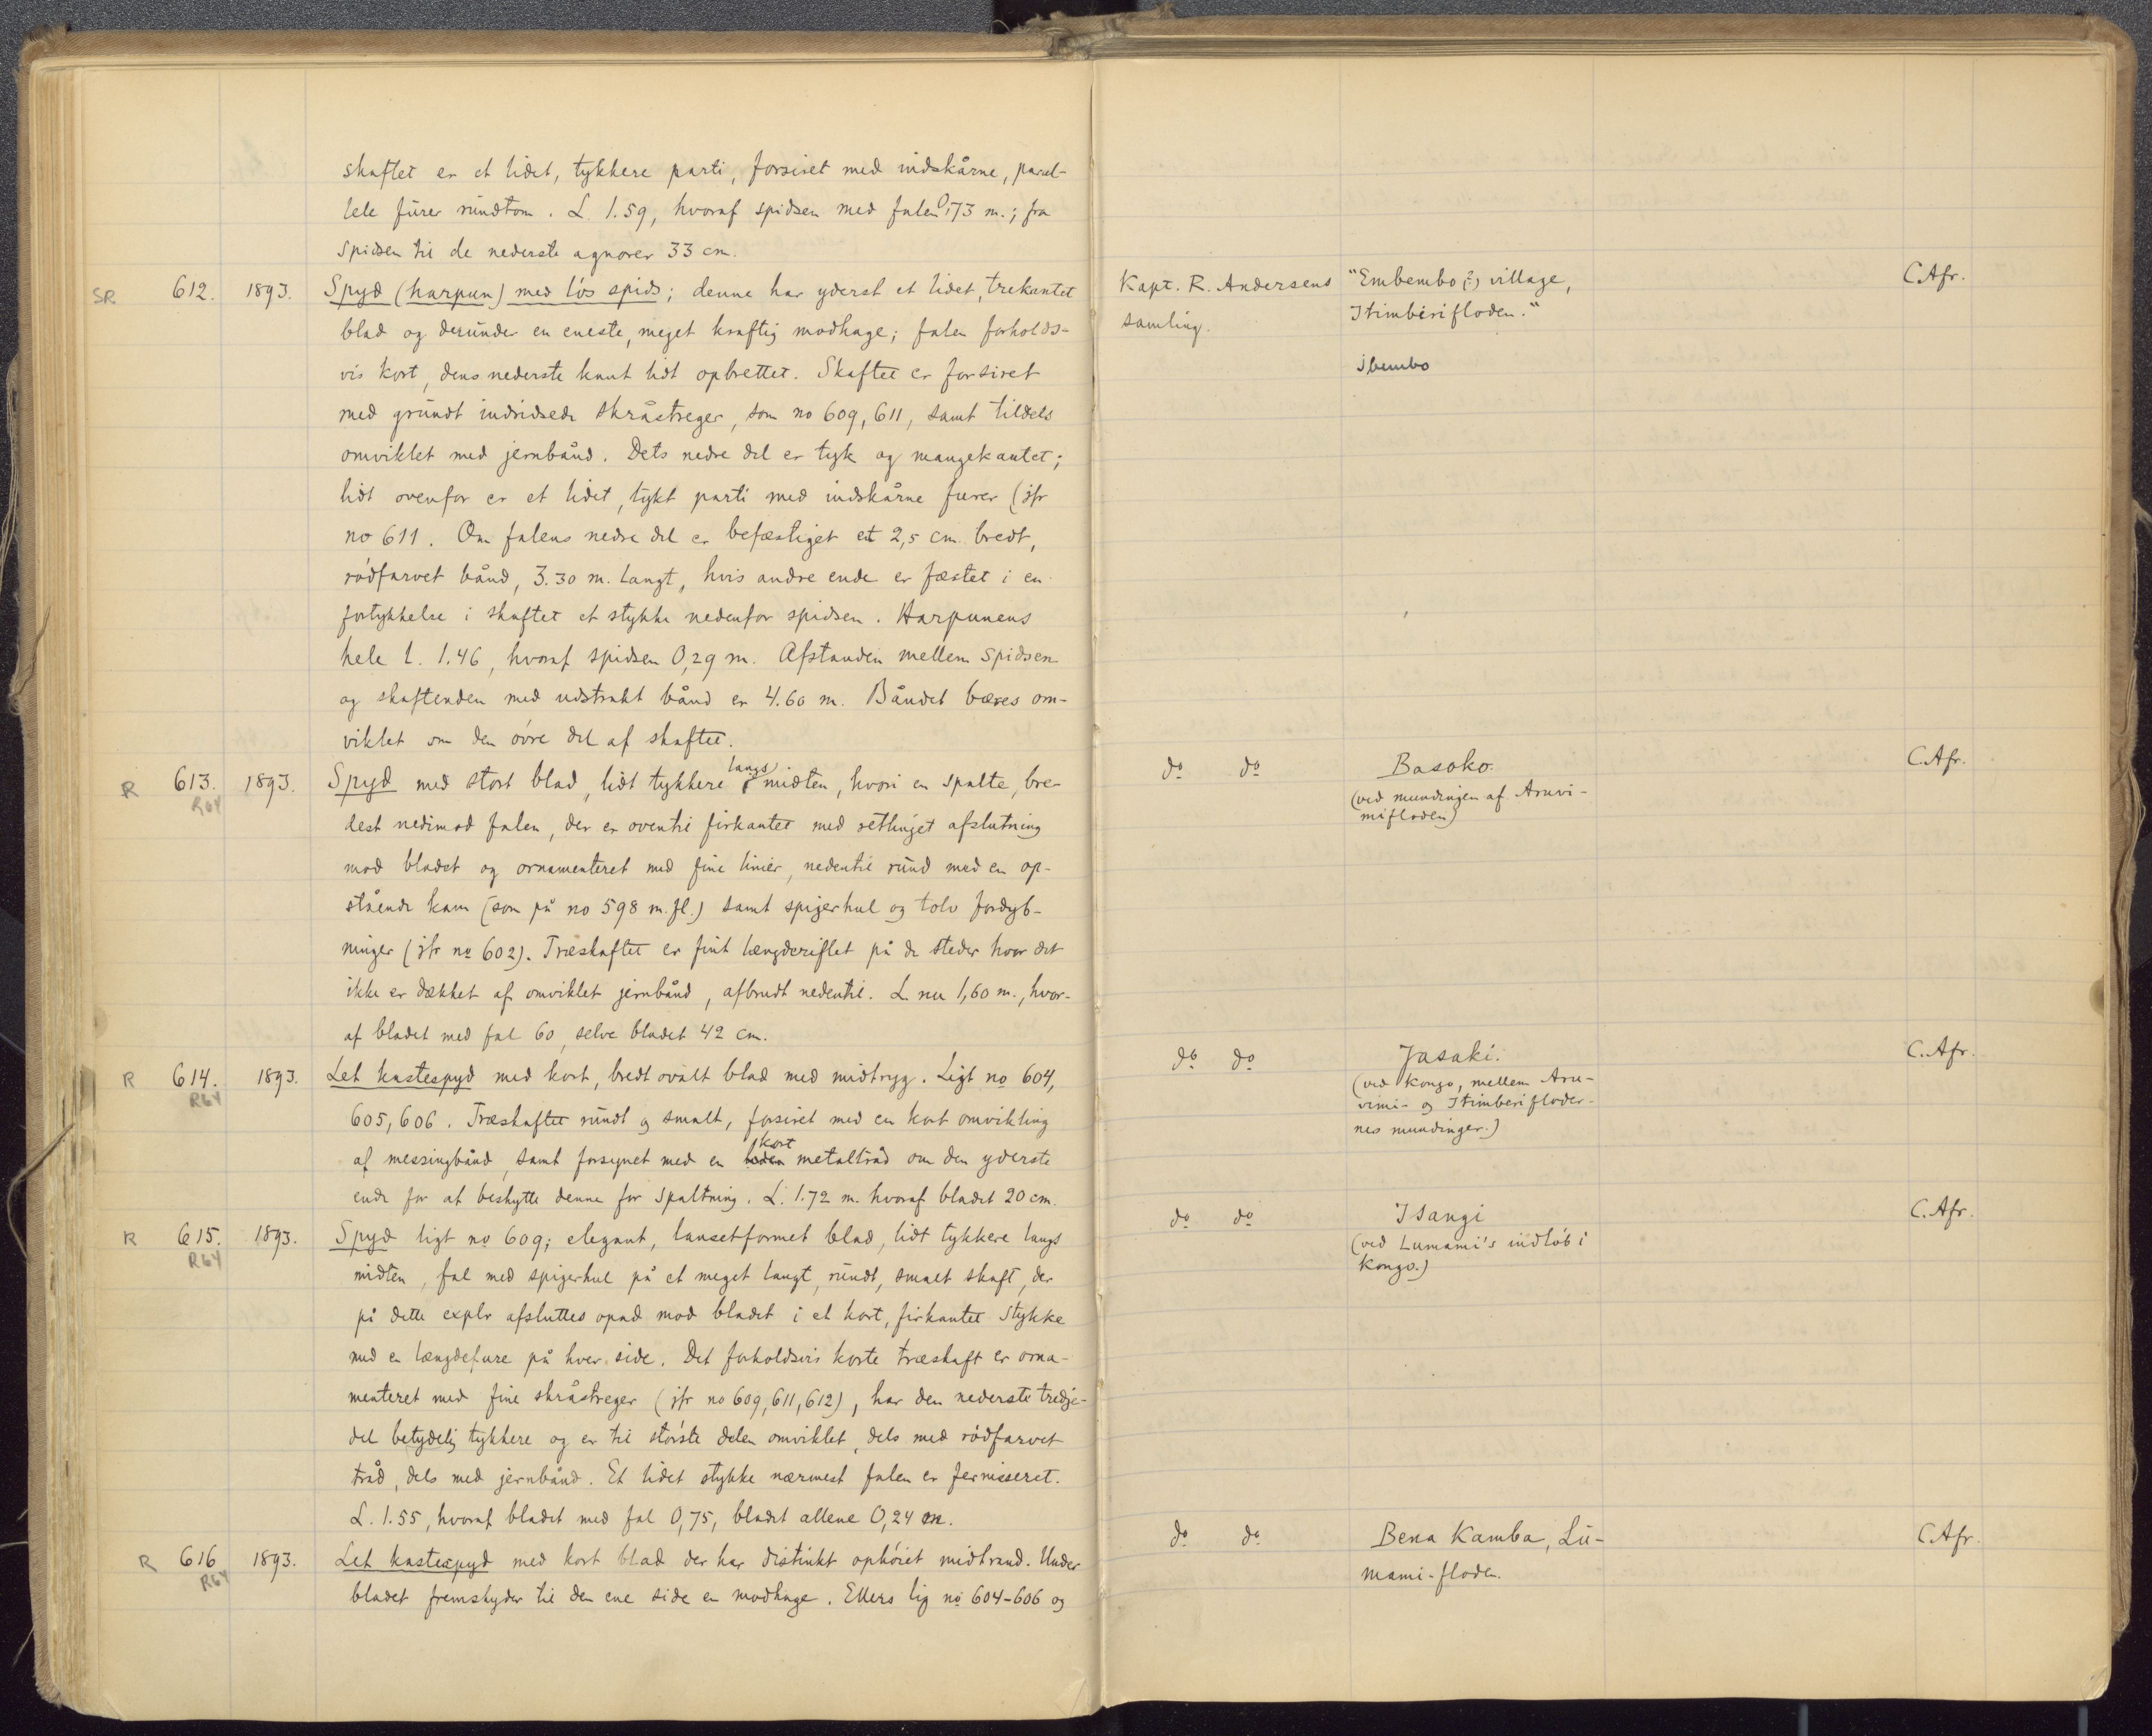 skaftet er et lidet, tykkere parti, forsiret med indskårne, paral-
lele furer rundtom. L. 1.59, hvoraf spidsen med falen 0,73 m.; fra
spidsen til de nederste agnorer 33 cm.
SR 612. 1893. Spyd (harpun) med løs spids; denne har yderst et lidet, trekantet
blad og derunder en eneste, meget kraftig modhage; falen forholds-
vis kort, dens nederste kant lidt opbrettet. Skaftet er forsiret
med grundt indridsede skråstreger, som no 609, 611, samt tildels
omviklet med jernbånd. Dets nedre del er tyk og mangekantet;
lidt ovenfor er et lidet, tykt parti med indskårne furer (jfr
no 611. Om falens nedre del er befæstiget et 2,5 cm. bredt,
rødfarvet bånd, 3.30 m. langt, hvis andre ende er fæstet i en
fortykkelse i skaftet et stykke nedenfor spidsen. Harpunens
hele l. 1.46, hvoraf spidsen 0,29 m. Afstanden mellem spidsen
og skaftenden med udstrakt bånd er 4.60 m. Båndet bæres om-
viklet om den øvre del af skaftet.
R 613. R64 1893. Spyd med stort blad, lidt tykkere langs midten, hvori en spalte, bre-
dest nedimod falen, der er oventil firkantet med retlinjet afslutning
mod bladet og ornamenteret med fine linier, nedentil rund med en op-
stående kam (som på no 598 m.fl.) samt spigerhul og tolv fordyb-
ninger (jfr no 602). Træskaftet er fint længderiflet på de steder hvor det
ikke er dækket af omviklet jernbånd, afbrudt nedentil. L. nu 1,60 m., hvor-
af bladet med fal 60, selve bladet 42 cm.
R 614. R64 1893. Let kastespyd med kort, bredt ovalt blad med midtryg. Ligt no 604,
605, 606. Træskaftet rundt og smalt, forsiret med en kort omvikling
af messingbånd, samt forsynet med en kort metaltråd om den yderste
ende for at beskytte denne for spaltning. L. 1.72 m. hvoraf bladet 20 cm.
R 615. R64 1893. Spyd ligt no 609; elegant, lansetformet blad, lidt tykkere langs
midten, fal med spigerhul på et meget langt, rundt, smalt skaft, der
på dette explr afsluttes opad mod bladet i et kort, firkantet stykke
med en længdefure på hver side. Det forholdsvis korte træskaft er orna-
menteret med fine skråstreger (jfr no 609, 611, 612), har den nederste tredje-
del betydelig tykkere og er til største delen omviklet, dels med rødfarvet
tråd, dels med jernbånd. Et lidet stykke nærmest falen er fernisseret.
L. 1.55, hvoraf bladet med fal 0,75, bladet allene 0,24 m.
R 616 R64 1893. Let kastespyd med kort blad der har distinkt ophøiet midtrand. Under
bladet fremskyder til den ene side en modhage. Ellers lig no 604-606 og
Kapt. R. Andersens samling.
"Embembo (?) village,
Itimbirifloden."
Ibembo
C.Afr.
do do Basoko.
(ved mundingen af Aruvi-
mifloden)
C.Afr.
do do Jasaki.
(ved Kongo, mellem Aru-
vimi- og Itimberifloder-
nes mundinger.)
C.Afr.
do do Isangi
(ved Lumami's indløb i
Kongo.)
C.Afr.
do do Bena Kamba, Lu-
mami-floden.
C.Afr.